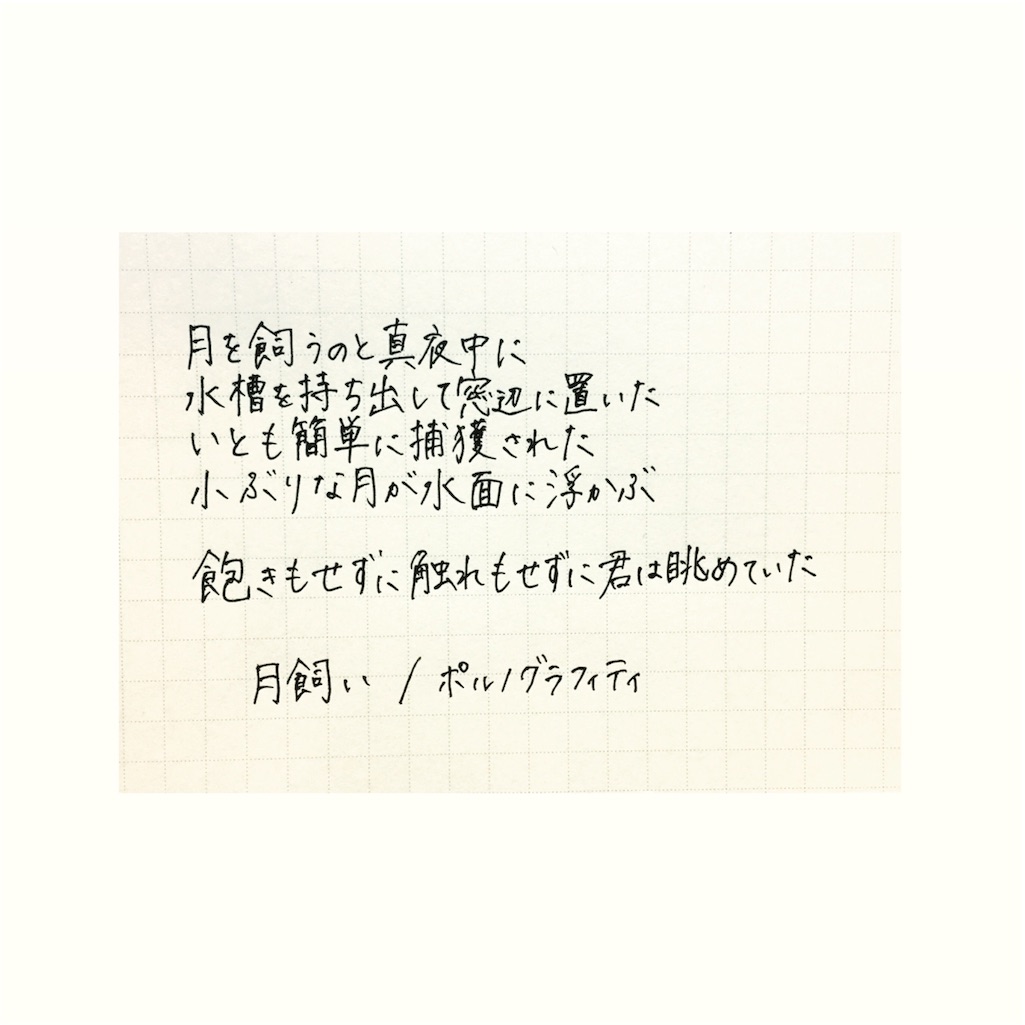 月を飼うのと真夜中に
水槽を持ち出して窓辺に置いた
いとも簡単に捕獲された
小ぶりな月が水面に浮かぶ
飽きもせずに触れもせずに君は眺めていた
月飼い / ポルノグラフィティ